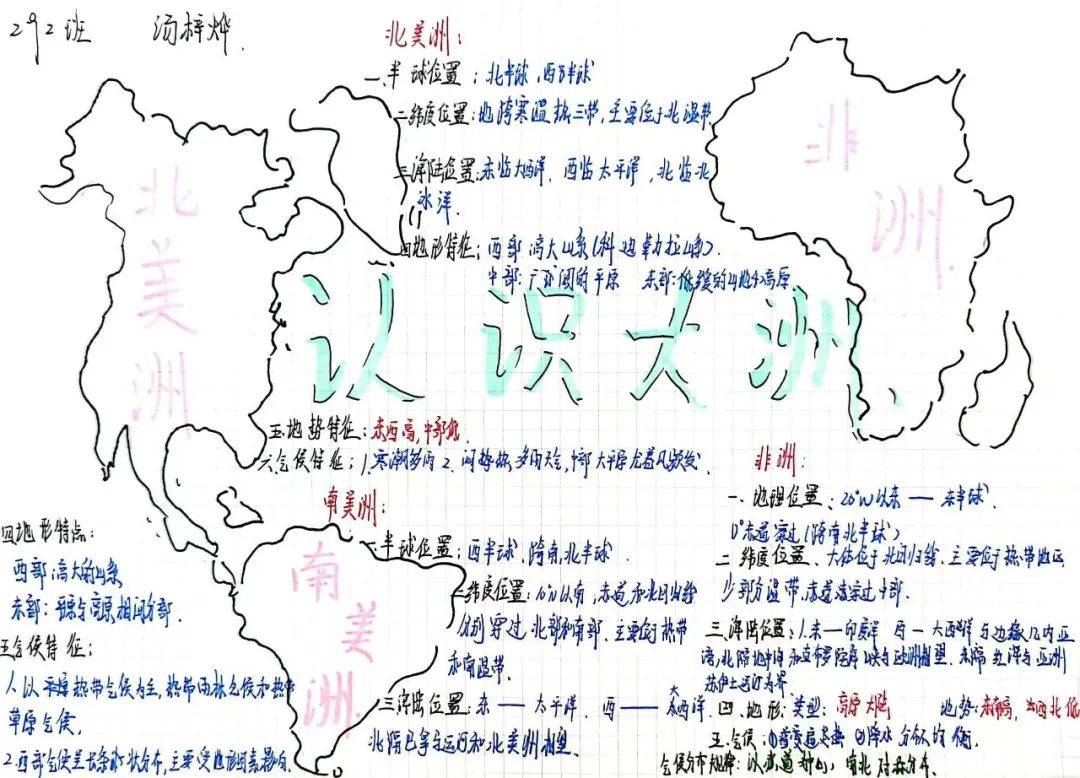 292班 汤梓烨
北美洲:
一.半球位置:北半球,西半球
二.纬度位置:地跨寒温热三带,主要位于北温带
三.海陆位置:东临大西洋,西临太平洋,北临北
冰洋.
四地形特征:西部高大山系(科迪勒拉山系).
中部:广阔的平原 东部:低缓的山地和高原.
北美洲
非洲
认识大洲
五.地势特征:东西高,中部低
六.气候特征:1.寒潮 2.闷热 多雨天气,中部大平原尤
南美洲:
一.半球位置:西半球,跨南,北半球.
二纬度位置:10°N以南,赤道和
分别穿过北部和南部.主要位于热带
和南温带.
三海陆位置:东——太平洋,西——大西洋.
北隔巴拿马运河和北美洲相望
南美洲
四地形特点:
西部高大的山系
东部:平原与高原相间分布.
五气候特征:
1.以 热带气候为主,热带雨林气候和热带
草原气候.
2.西部气候呈长条状分布,主要受地形因素影响.
非洲:
一、地理位置:20°W以东——东半球
0°赤道穿过(跨南北半球)
二纬度位置、大体位于 主要位于热带地区
少部分温带,赤道穿过中部.
三.海陆位置:1.东—印度洋 西—大西洋与边缘几内亚
湾,北隔地中海和直布罗陀海峡与欧洲相望.东隔红海与亚洲
苏伊士运河为界.
四、地形:类型:高原大陆 地势:东南高,西北低
五.气候:①普遍暑热 ②降水分布
气候分布规律:以赤道为 南北对称分布.